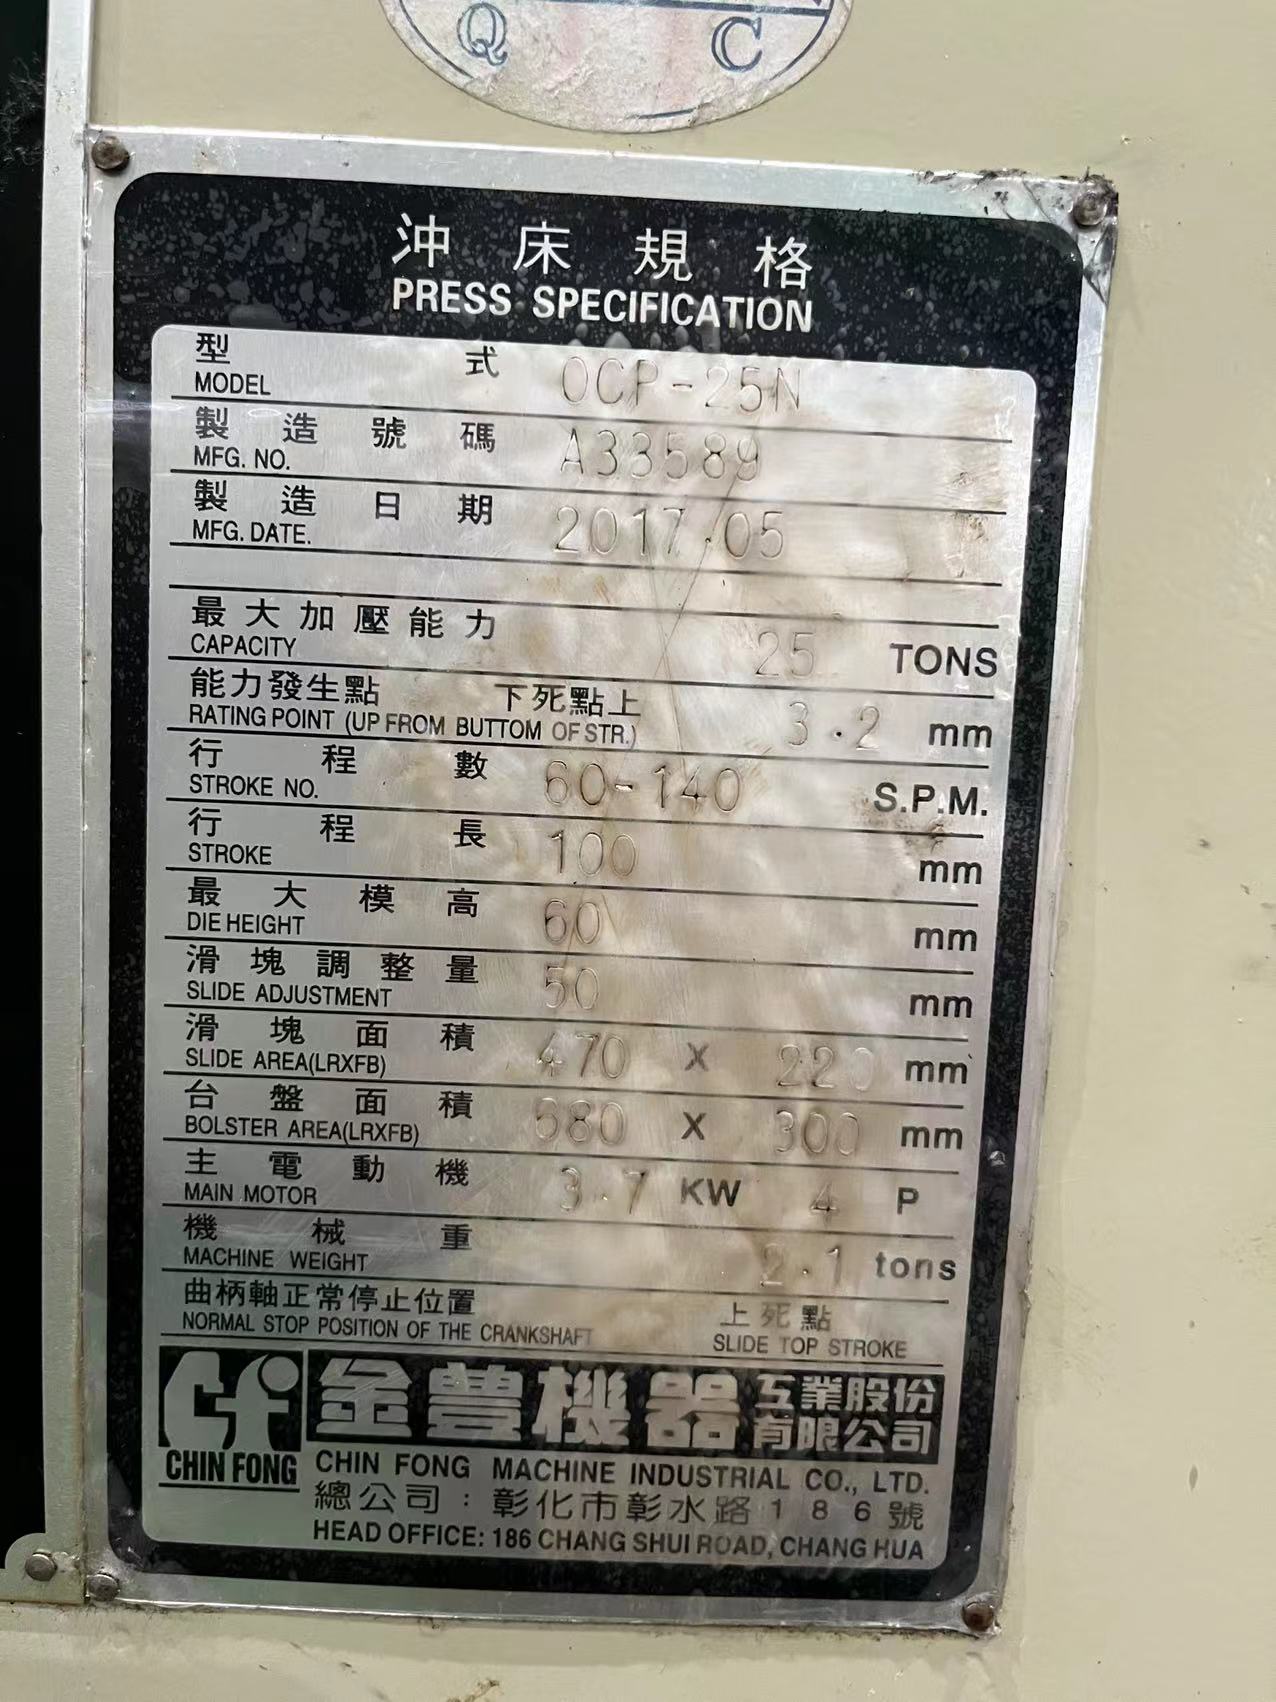 Q C
沖床規格
PRESS SPECIFICATION
型式 OCP-25N
MODEL
製造號碼 A33589
MFG. NO.
製造日期 2017.05
MFG. DATE.
最大加壓能力 25 TONS
CAPACITY
能力發生點 下死點上 3.2 mm
RATING POINT (UP FROM BUTTOM OF STR.)
行程數 60-140 S.P.M.
STROKE NO.
行程長 100 mm
STROKE
最大模高 60 mm
DIE HEIGHT
滑塊調整量 50 mm
SLIDE ADJUSTMENT
滑塊面積 470 X 220 mm
SLIDE AREA(LRXFB)
台盤面積 680 X 300 mm
BOLSTER AREA(LRXFB)
主電動機 3.7 KW 4 P
MAIN MOTOR
機械重 2.1 tons
MACHINE WEIGHT
曲柄軸正常停止位置 上死點
NORMAL STOP POSITION OF THE CRANKSHAFT SLIDE TOP STROKE
金豐機器 互業股份有限公司
CHIN FONG CHIN FONG MACHINE INDUSTRIAL CO., LTD.
總公司：彰化市彰水路186號
HEAD OFFICE: 186 CHANG SHUI ROAD, CHANG HUA